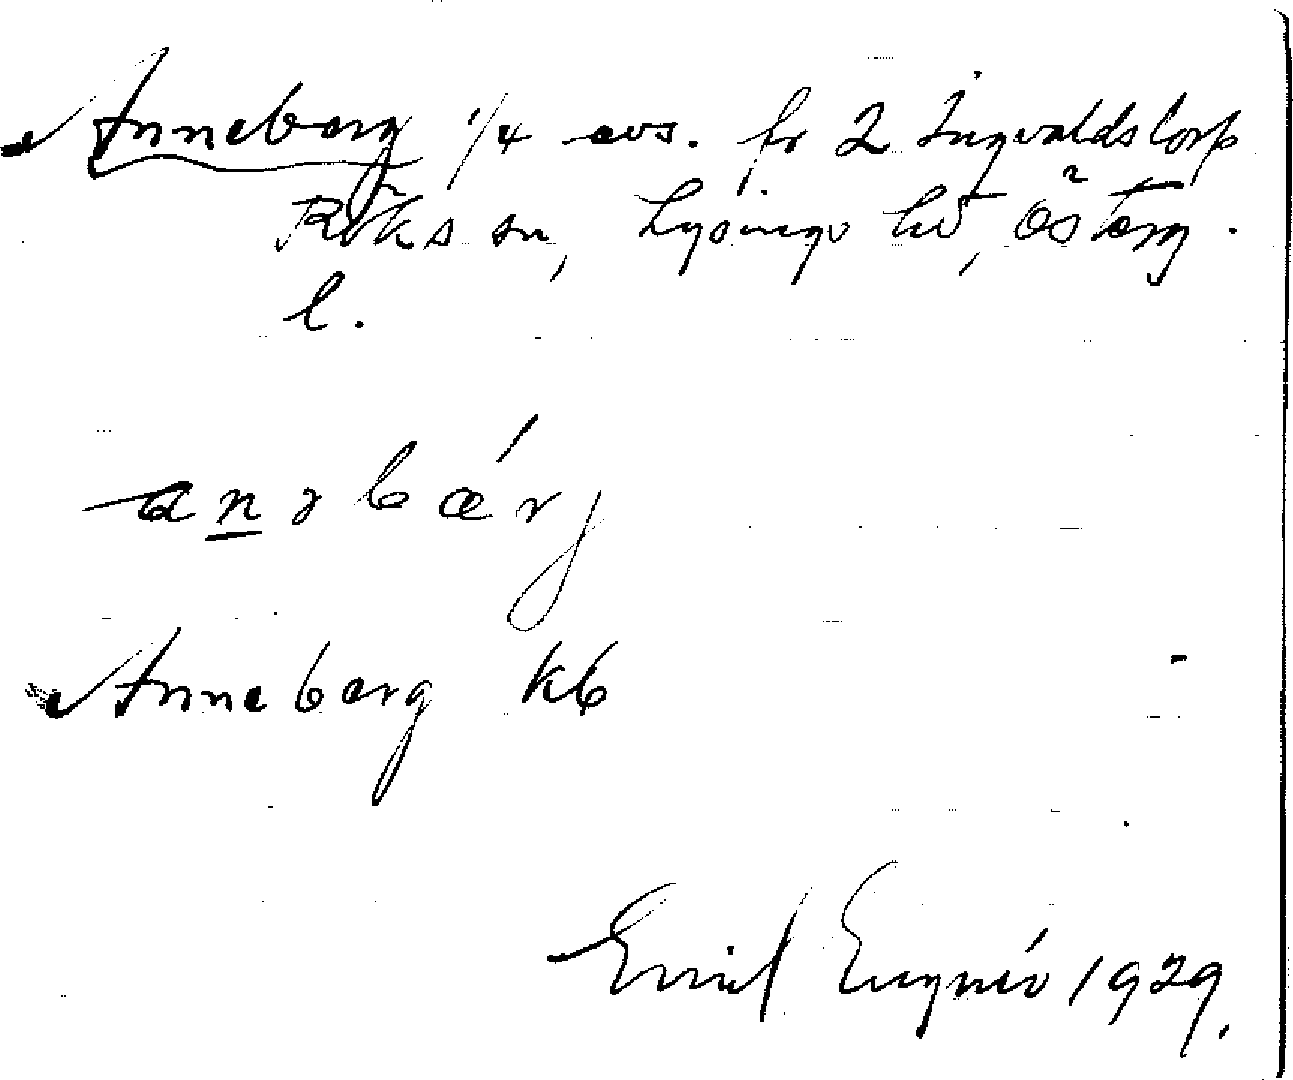 Anneberg 1/4 avs. fr 2 Ingvaldstorp
Röks sn, Lysings hd, Österg.
l.
Anneberg kb
Emil 1929.